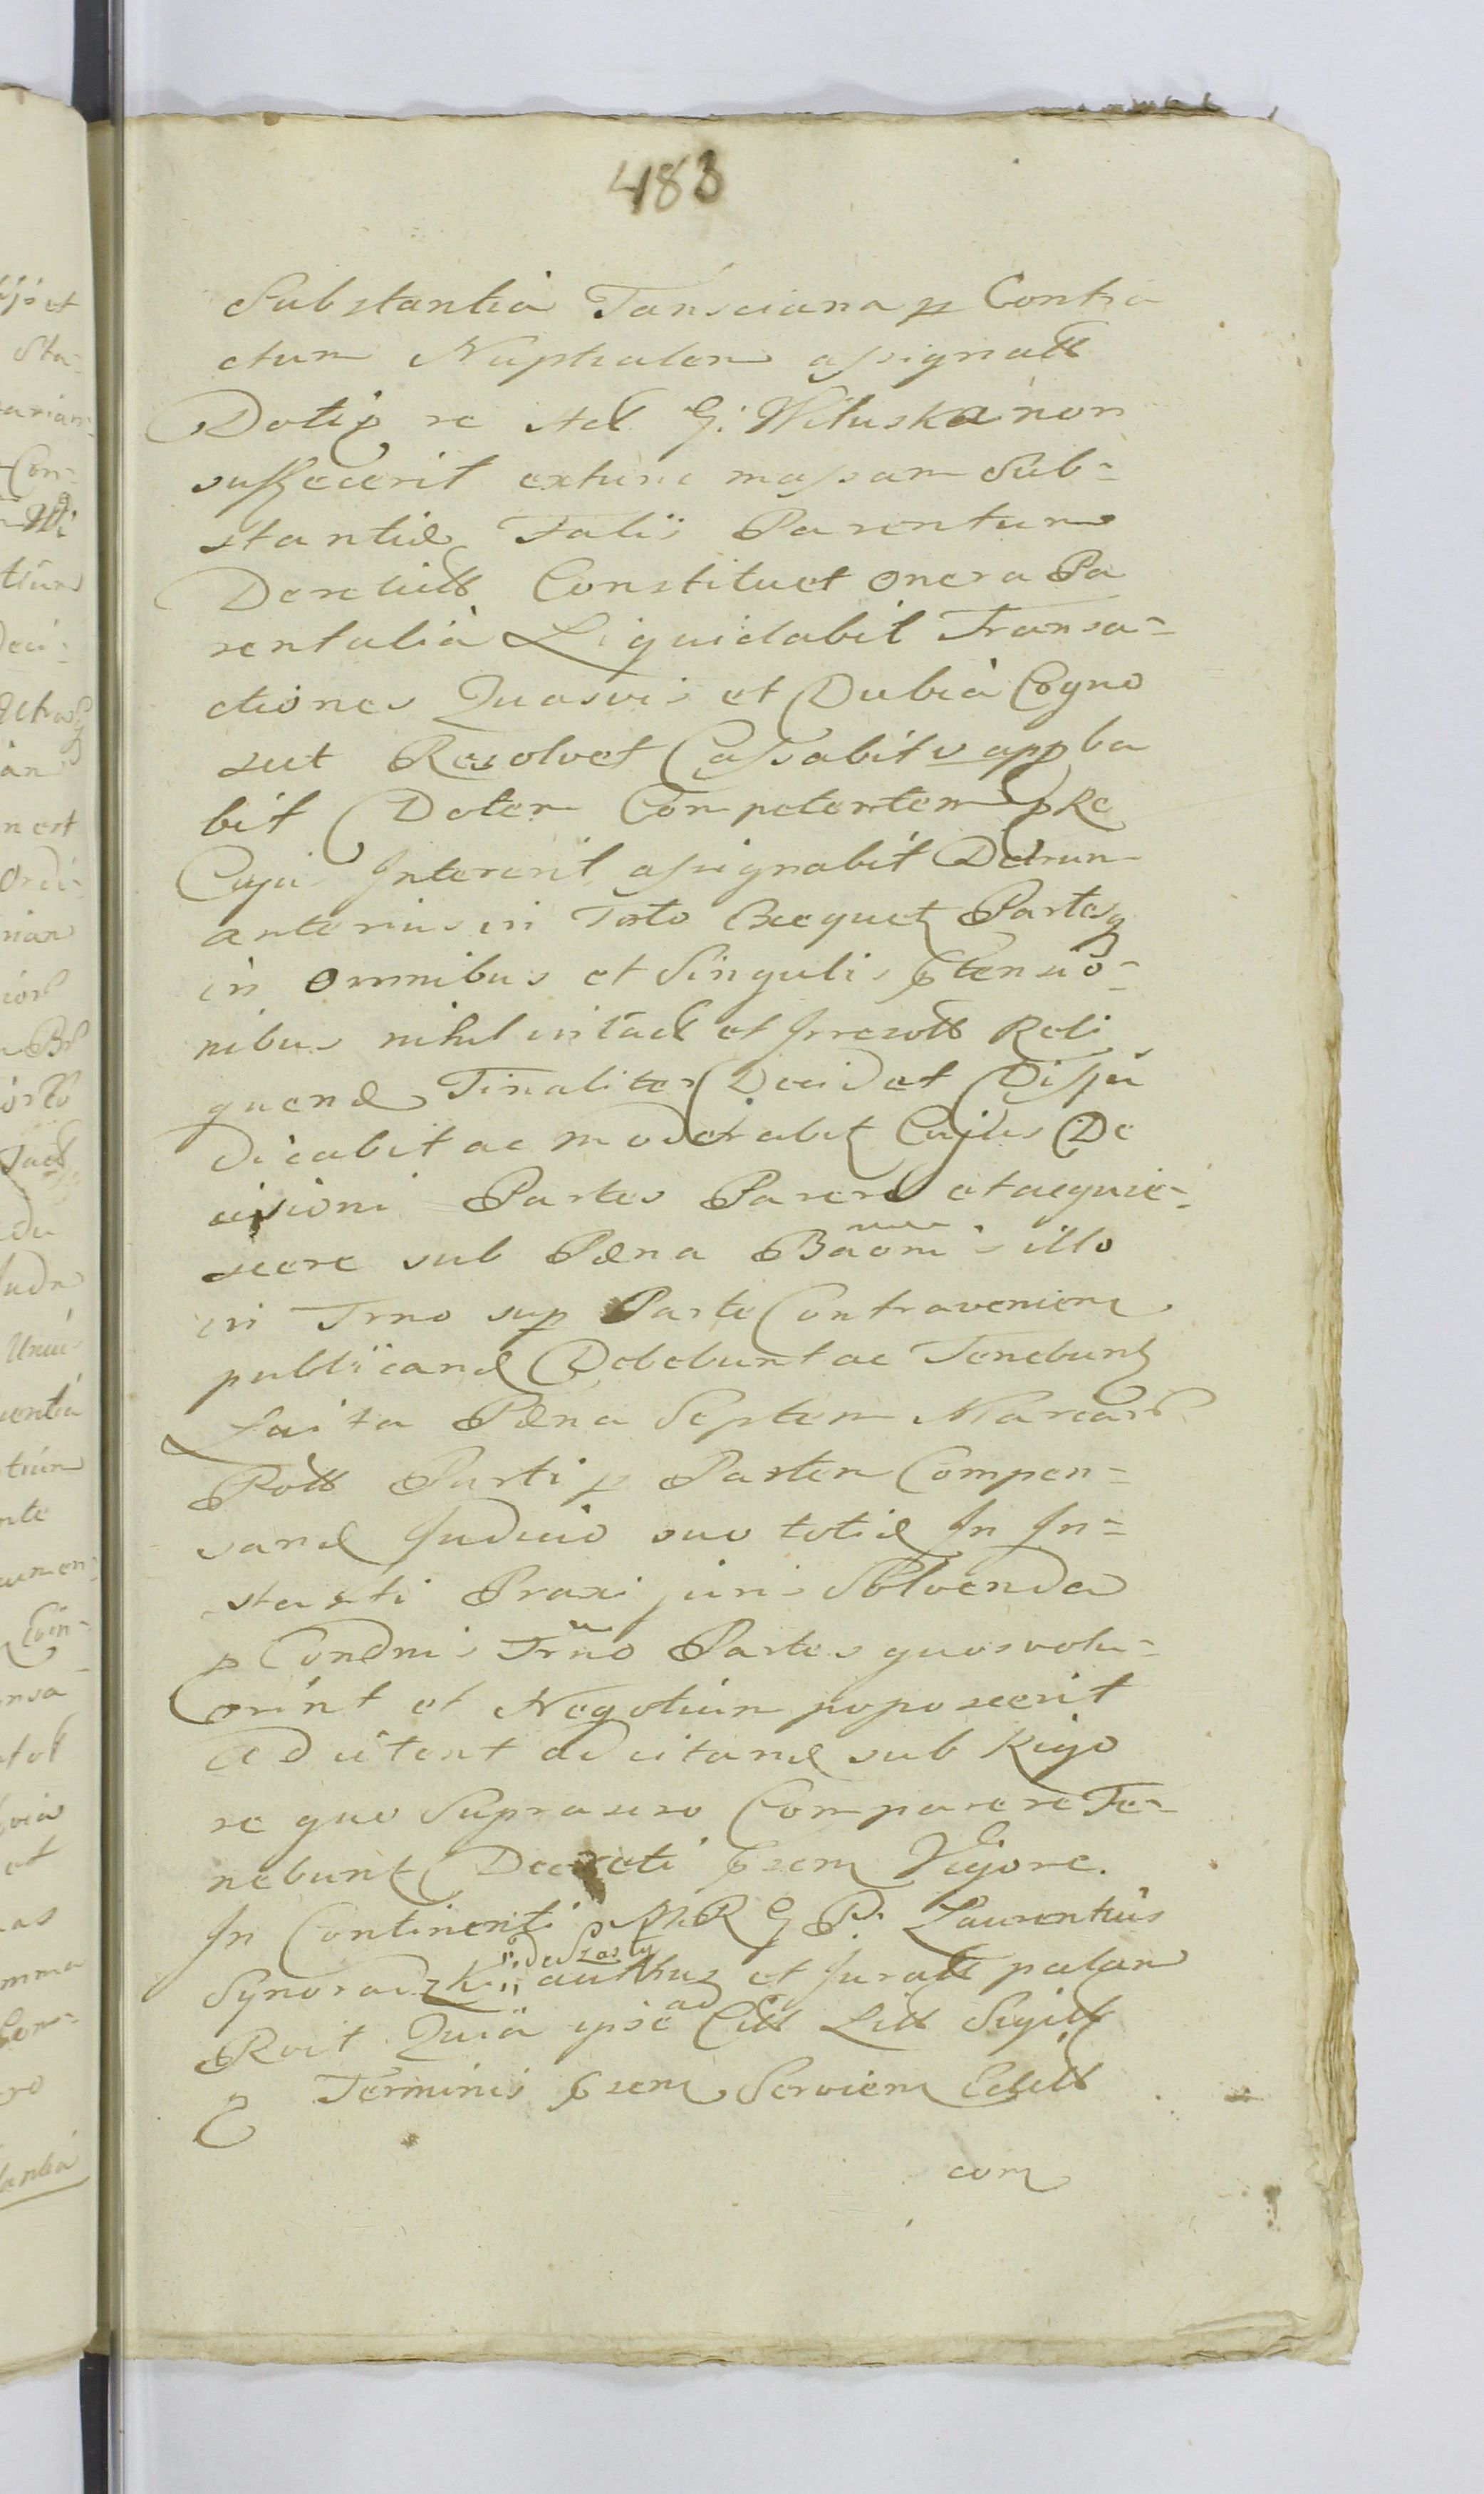 483
Substantia Tansciana p Contra
ctum Nuptialem assignatt
Dotis re Ad G. Wiluska non
suffecerit extunc massam Sub=
stantiæ Talis Parentum
Derelictt Constituet onera Pa
rentalia Liquidabit Transa=
ctiones Quasvis et Dubia Cogno
scet Resolvet Cassabit v appba
bit Dotem Competentem pRe
Cuius Intererit assignabit Detrum
anterius in Toto Exequet Partesq
in omnibus et Singulis Ptensio=
nibus nihil intact et Irresott Reli
quend Finaliter Decidet Dijui
dicabit ac moderabit Cujus De
cisioni Partes Parere et acquie=
scere sub Pæna Bãoni s illo
in Trno sup Parte Contravenien
publicand Debebunt ac Tenebunt
Luita Pæna Septem Marcar
Pott Parti p Partem Compen=
sand Judicio suo totid In In=
stanti Praxi juris Solvenda
p Condni s Trño Partes quos volu=
erint et Negotium poposcerit
adcitent adcitand sub Rigo
re quo Suprasero Comparere Te=
nebunt Decreti Psent Vigore.
In Continenti MR G P. Laurentius
Synoradzki auttus et Juratt palam
de Szasty
Rvit Quia ipse ad Citt Litt Sigitt
Terminis Psent Servien Edictt
com